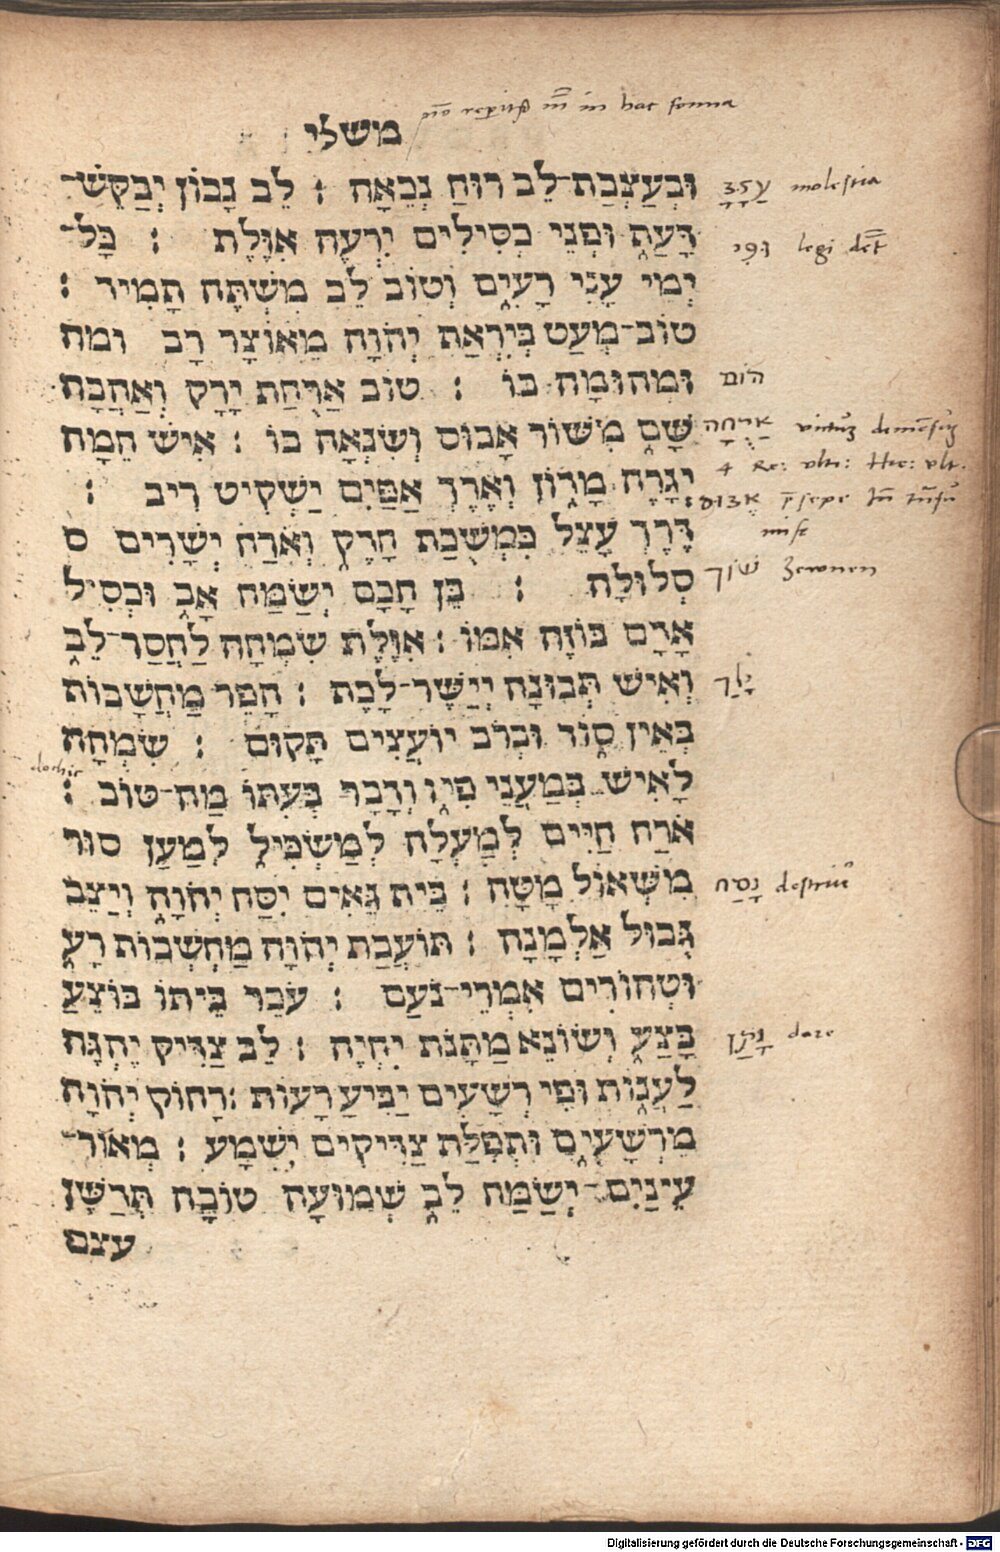 משלי
in hac forma
וּבְעַצְּבַת־לֵב רוּחַ נְכֵאָה : לֵב נָבוֹן יְבַקֶּשׁ־
עָצַב molestia
דָּעַת וּפְנֵי כְסִילִים יִרְעֶה אִוֶּלֶת : כָּל־
וּפִי legi
יְמֵי עָנִי רָעִים וְטוֹב לֵב מִשְׁתֶּה תָמִיד :
טוֹב־מְעַט בְּיִרְאַת יְהֹוָה מֵאוֹצָר רָב ומה
וּמְהוּמָה בוֹ : טוֹב אֲרֻחַת יָרָק וְאַהֲבָה
הום
שָׁם מִשּׁוֹר אָבוּס וְשִׂנְאָה בוֹ : אִישׁ חֵמָה
אֲרֻחָה
יְגָרֶה מָדוֹן וְאֶרֶךְ אַפַּיִם יַשְׁקִיט רִיב :
אבוס
דֶּרֶךְ עָצֵל כִּמְשֻׂכַת חָדֶק וְאֹרַח יְשָׁרִים ס
סְלוּלָה : בֵּן חָכָם יְשַׂמַּח אָב וּכְסִיל
שׂוך
אָדָם בּוֹזֶה אִמּוֹ : אִוֶּלֶת שִׂמְחָה לַחֲסַר־לֵב
וְאִישׁ תְּבוּנָה יְיַשֶּׁר־לָכֶת : הָפֵר מַחֲשָׁבוֹת
יָלַך
בְּאֵין סוֹד וּבְרֹב יוֹעֲצִים תָּקוּם : שִׂמְחָה
לָאִישׁ בְּמַעֲנֵי פִיו וְדָבָר בְּעִתּוֹ מַה־טּוֹב :
אֹרַח חַיִּים לְמַעְלָה לְמַשְׂכִּיל לְמַעַן סוּר
מִשְּׁאוֹל מָטָּה : בֵּית גֵּאִים יִסַּח יְהֹוָה וְיַצֵּב
נָסַח
גְּבוּל אַלְמָנָה : תּוֹעֲבַת יְהֹוָה מַחְשְׁבוֹת רָע
וּטְהוֹרִים אִמְרֵי־נֹעַם : עֹכֵר בֵּיתוֹ בּוֹצֵעַ
בָּצַע וְשׂוֹנֵא מַתָּנֹת יִחְיֶה : לֵב צַדִּיק יֶהְגֶּה
נָתַן dare
לַעֲנוֹת וּפִי רְשָׁעִים יַבִּיעַ רָעוֹת : רָחוֹק יְהֹוָה
מֵרְשָׁעִים וּתְפִלַּת צַדִּיקִים יִשְׁמָע : מְאוֹר־
עֵינַיִם־יְשַׂמַּח לֵב שְׁמוּעָה טוֹבָה תְּדַשֶּׁן
עצם
Digitalisierung gefördert durch die Deutsche Forschungsgemeinschaft - DFG